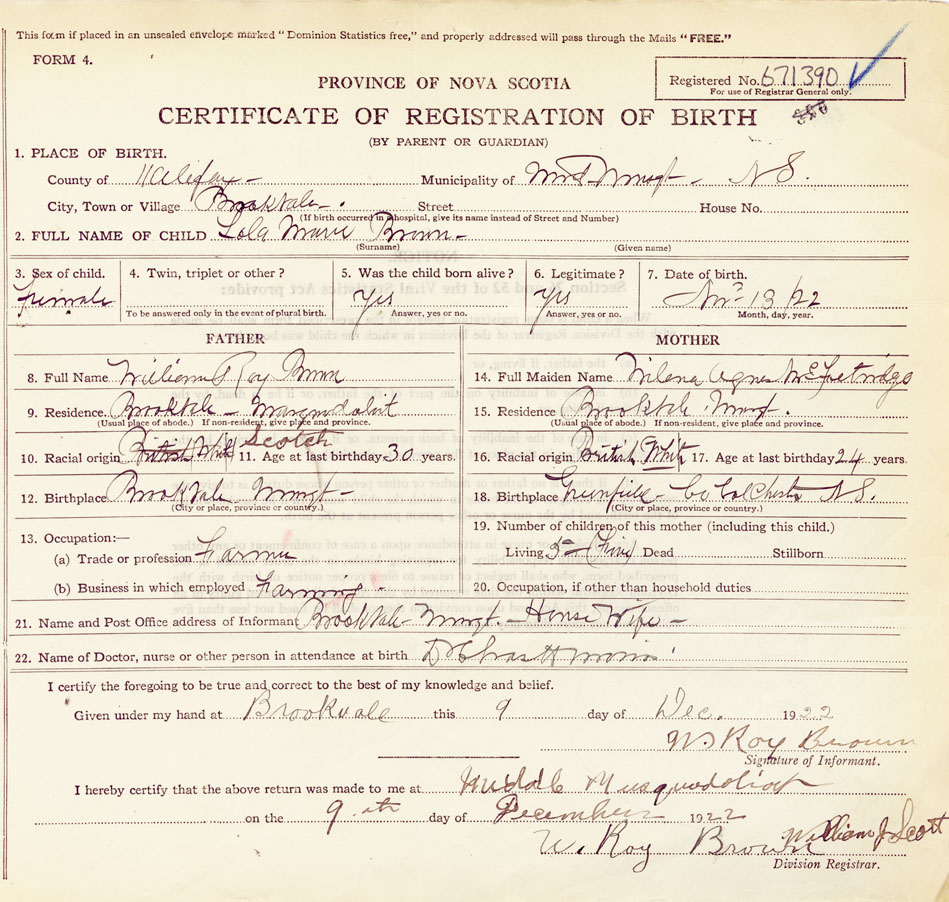 This form if placed in an unsealed envelope marked "Dominion Statistics free," and properly addressed will pass through the Mails "FREE."
FORM 4.
PROVINCE OF NOVA SCOTIA
Registered No. 671390
For use of Registrar General only.
CERTIFICATE OF REGISTRATION OF BIRTH
(BY PARENT OR GUARDIAN)
1. PLACE OF BIRTH.
County of Halifax - Municipality of N S.
City, Town or Village Brookvale - . Street House No.
(If birth occurred in hospital, give its name instead of Street and Number)
2. FULL NAME OF CHILD Lola Marie Brown -
(Surname) (Given name)
3. Sex of child. 4. Twin, triplet or other ? 5. Was the child born alive ? 6. Legitimate ? 7. Date of birth.
female yes yes 13/22
To be answered only in the event of plural birth. Answer, yes or no. Answer, yes or no. Month, day, year.
FATHER MOTHER
8. Full Name William Roy Brown 14. Full Maiden Name Agnes
9. Residence. Brookvale - 15. Residence. Brookvale
(Usual place of abode.) If non-resident, give place and province. (Usual place of abode.) If non-resident, give place and province.
10. Racial origin British White Scotch 11. Age at last birthday 30 years. 16. Racial origin British White 17. Age at last birthday 24 years.
12. Birthplace Brookvale 18. Birthplace Greenfield - Co Colchester N S.
(City or place, province or country.) (City or place, province or country.)
13. Occupation:— 19. Number of children of this mother (including this child.)
(a) Trade or profession Farmer Living Dead Stillborn
(b) Business in which employed Farming - 20. Occupation, if other than household duties
21. Name and Post Office address of Informant Brookvale - House Wife -
22. Name of Doctor, nurse or other person in attendance at birth
I certify the foregoing to be true and correct to the best of my knowledge and belief.
Given under my hand at Brookvale this 9 day of Dec. 1922
W Roy Brown
Signature of Informant.
I hereby certify that the above return was made to me at Middle Musquodoboit
on the 9th day of December 1922
W. Roy Brown William J Scott
Division Registrar.